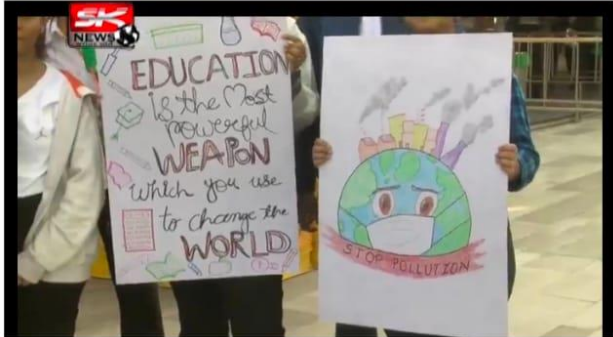 SK
NEWS
EDUCATION
is the Most
powerful
WEAPON
which you use
to change the
WORLD
STOP POLLUTION